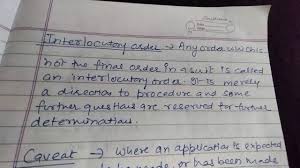 Interlocutory order → Any order which is
not the final order in a suit is called
an interlocutory order. It is merely
a direction to procedure and some
further questions are reserved for further
determination.
Caveat → Where an application is expected
to be made, or has been made